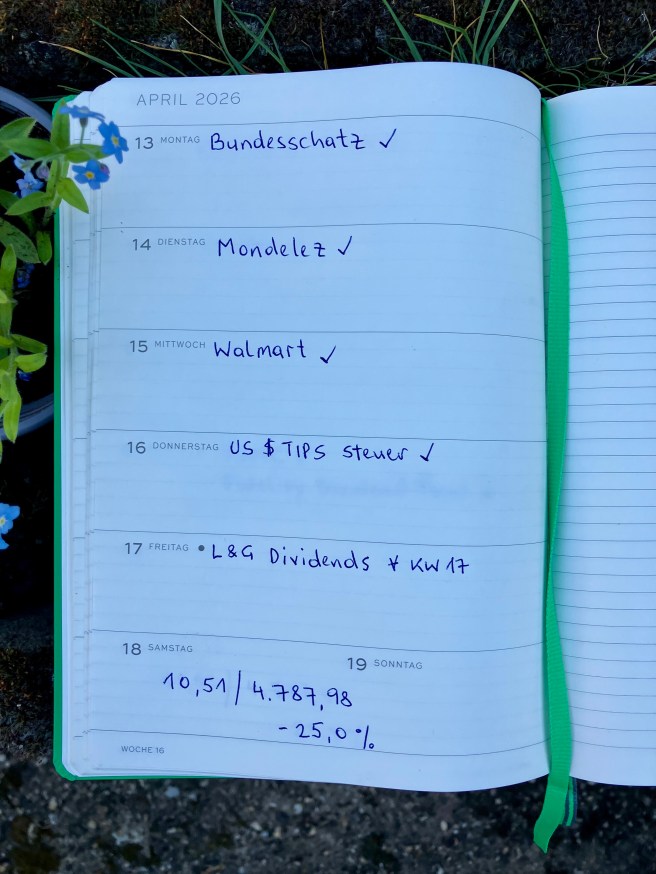 APRIL 2026
13 MONTAG Bundesschatz ✓
14 DIENSTAG Mondelez ✓
15 MITTWOCH Walmart ✓
16 DONNERSTAG US $ TIPS Steuer ✓
17 FREITAG • L&G Dividends KW 17
18 SAMSTAG
19 SONNTAG
10,51 | 4.787,98
- 25,0 %
WOCHE 16